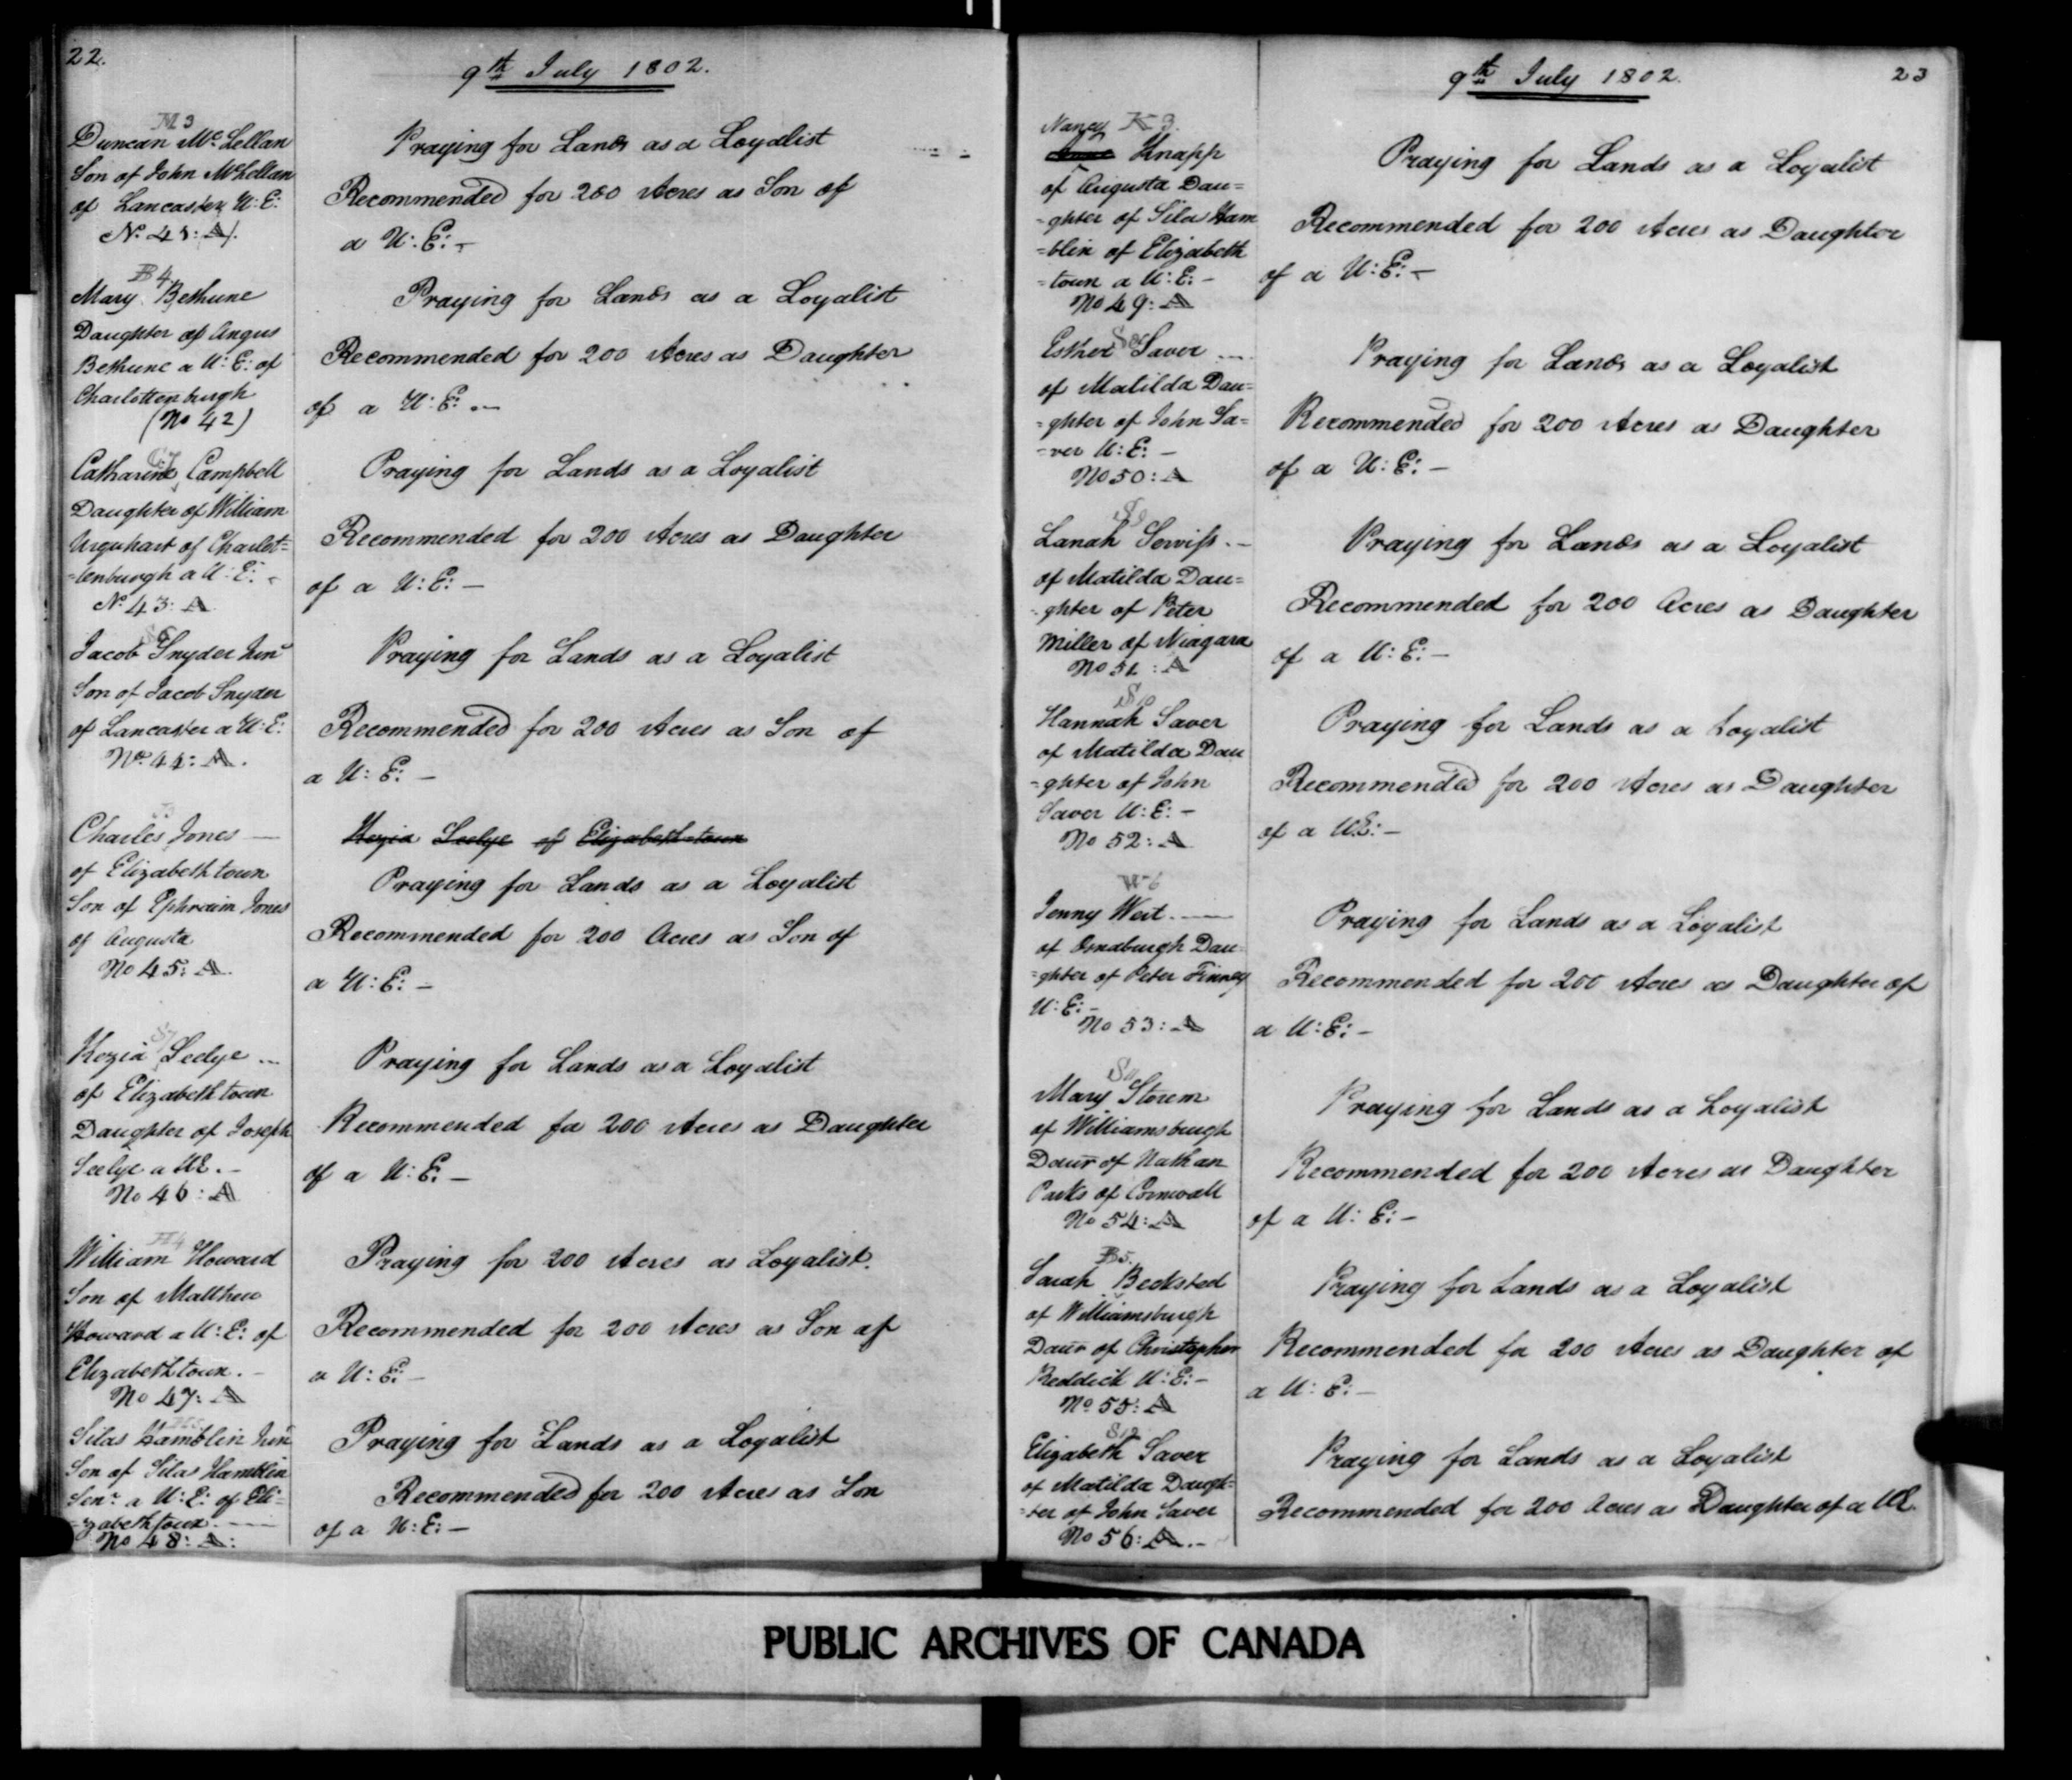 22.
9th July 1802.
M 3
Duncan Mc Lellan
Son of John McLellan
of Lancaster U:E:
No. 41: A
Praying for Lands as a Loyalist
Recommended for 200 Acres as Son of
a U:E:-
B 4
Mary Bethune
Daughter of Angus
Bethune a U:E: of
Charlottenburgh
(No 42)
Praying for Lands as a Loyalist
Recommended for 200 Acres as Daughter
of a U:E:-
Catharine Campbell
Daughter of William
Urquhart of Charlot=
=tenburgh a U:E:-
No. 43: A
Praying for Lands as a Loyalist
Recommended for 200 Acres as Daughter
of a U:E:-
Jacob Snyder Junr
Son of Jacob Snyder
of Lancaster a U:E:
No. 44: A.
Praying for Lands as a Loyalist
Recommended for 200 Acres as Son of
a U:E:-
Charles Jones -
of Elizabeth town
Son of Ephraim Jones
of Augusta
No 45: A.
Kezia Seelye of Elizabeth town
Praying for Lands as a Loyalist
Recommended for 200 Acres as Son of
a U:E:-
Kezia Seelye ...
of Elizabeth town
Daughter of Joseph
Seelye a UE.-
No 46: A
Praying for Lands as a Loyalist
Recommended for 200 Acres as Daughter
of a U:E:-
H4
William Howard
Son of Matthew
Howard a U:E: of
Elizabeth town.-
No 47: A
Praying for 200 Acres as Loyalist.
Recommended for 200 Acres as Son of
a U:E:-
H5
Silas Hamblin Junr
Son of Silas Hamblin
Senr a U:E: of Eli=
=zabeth town.-
No 48: A:
Praying for Lands as a Loyalist
Recommended for 200 Acres as Son
of a U:E:-
9th July 1802.
23
Nancy K 3.
Knapp
of Augusta Dau=
=ghter of Silas Ham
=blin of Elizabeth
=town a U:E:-
No 49: A
Praying for Lands as a Loyalist
Recommended for 200 Acres as Daughter
of a U:E:-
Esther Saver ...
of Matilda Dau=
=ghter of John Sa=
=ver U:E:-
No 50: A
Praying for Lands as a Loyalist
Recommended for 200 Acres as Daughter
of a U:E:-
S9
Lanah Serviss.-
of Matilda Dau=
=ghter of Peter
Miller of Niagara
No 51: A
Praying for Lands as a Loyalist
Recommended for 200 Acres as Daughter
of a U:E:-
S10
Hannah Saver
of Matilda Dau
=ghter of John
Saver U:E:-
No 52: A
Praying for Lands as a Loyalist
Recommended for 200 Acres as Daughter
of a UE:-
W 6
Jenny Weit.-
of Osnaburgh Dau=
=ghter of Peter Finney
U:E:-
No 53: A
Praying for Lands as a Loyalist
Recommended for 200 Acres as Daughter of
a U:E:-
S11
Mary Storem
of Williamsburgh
Daur of Nathan
Parks of Cornwall
No 54: A
Praying for Lands as a Loyalist
Recommended for 200 Acres as Daughter
of a U:E:-
B5.
Sarah Becksted
of Williamsburgh
Daur of Christopher
Reddick U:E:-
No 55: A
Praying for Lands as a Loyalist
Recommended for 200 Acres as Daughter of
a U:E:-
S12
Elizabeth Saver
of Matilda Daugh=
=ter of John Saver
No 56: A.-
Praying for Lands as a Loyalist
Recommended for 200 Acres as Daughter of a UE.
PUBLIC ARCHIVES OF CANADA